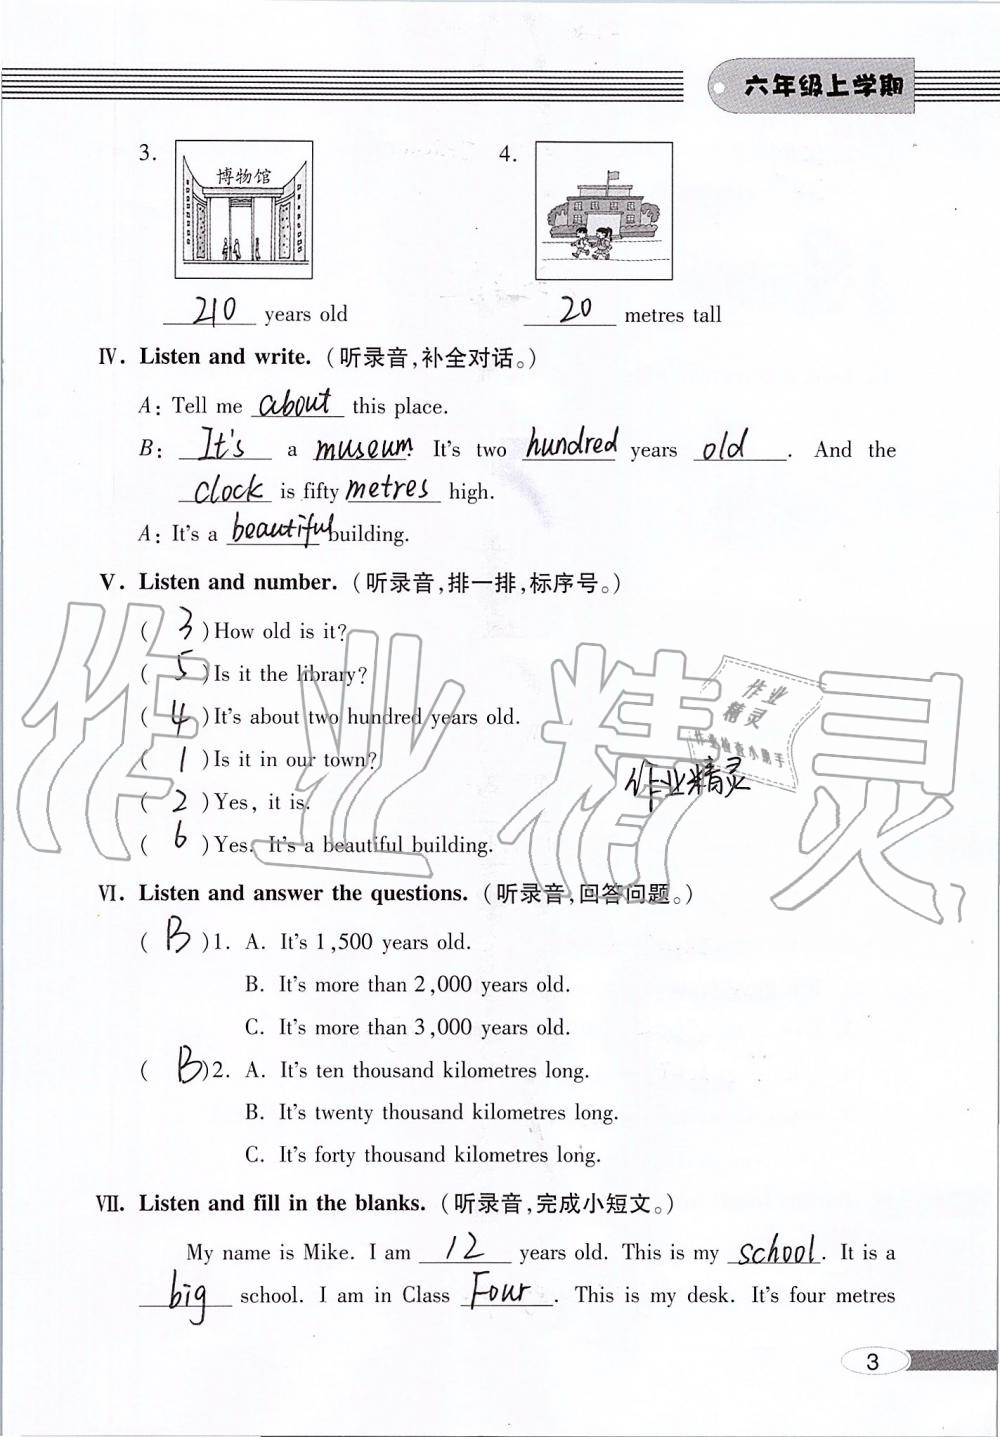 六年级上学期
3. 4.
博物馆
210 years old 20 metres tall
Ⅳ. Listen and write. (听录音,补全对话。)
A: Tell me about this place.
B: It's a museum. It's two hundred years old. And the
clock is fifty metres high.
A: It's a beautiful building.
Ⅴ. Listen and number. (听录音,排一排,标序号。)
( 3 )How old is it?
( 5 )Is it the library?
( 4 )It's about two hundred years old.
( 1 )Is it in our town?
( 2 )Yes, it is.
( 6 )Yes. It's a beautiful building.
作业精灵
作业
精灵
作业检查小助手
作业精灵
Ⅵ. Listen and answer the questions. (听录音,回答问题。)
( B )1. A. It's 1,500 years old.
B. It's more than 2,000 years old.
C. It's more than 3,000 years old.
( B )2. A. It's ten thousand kilometres long.
B. It's twenty thousand kilometres long.
C. It's forty thousand kilometres long.
Ⅶ. Listen and fill in the blanks. (听录音,完成小短文。)
My name is Mike. I am 12 years old. This is my school. It is a
big school. I am in Class Four. This is my desk. It's four metres
3